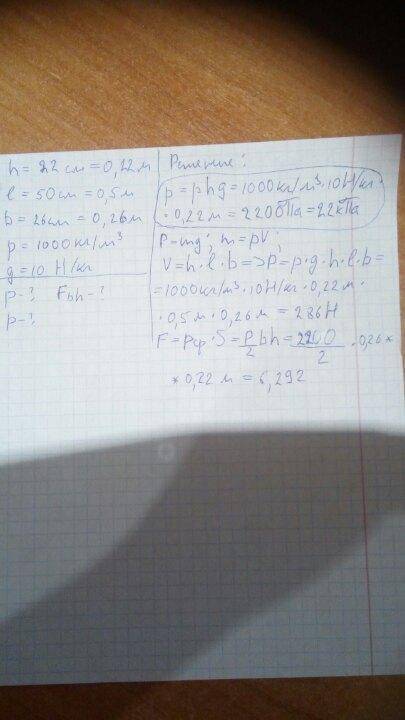 h = 22 см = 0,22 м
l = 50 см = 0,5 м
b = 26 см = 0,26 м
p = 1000 кг/м³
g = 10 Н/кг
p - ? Fbh - ?
p - ?
Решение:
p = phg = 1000 кг/м³ · 10 Н/кг ·
· 0,22 м = 2200 Па = 22 кПа
P = mg; m = pV;
V = h · l · b => P = p · g · h · l · b =
= 1000 кг/м³ · 10 Н/кг · 0,22 м ·
· 0,5 м · 0,26 м = 286 Н
F = pср · S = p/2 bh = 2200/2 · 0,26 *
* 0,22 м = 6,292